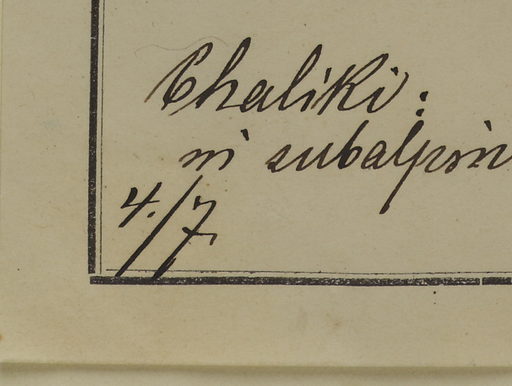 Chaliki:
in subalpin
4./7